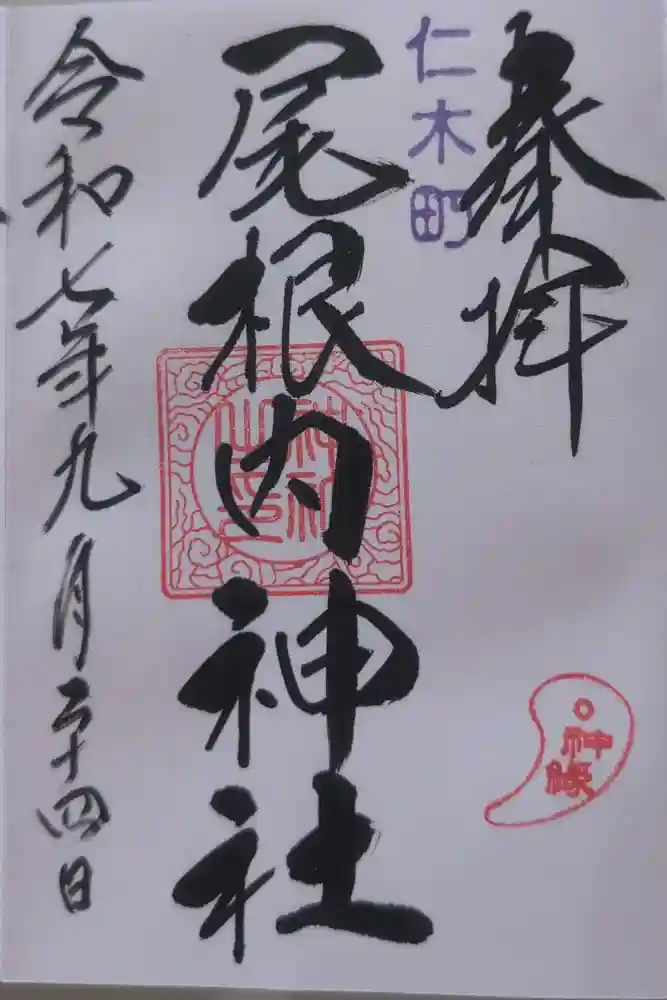 奉拝
仁木町
尾根内神社
神社之印
令和七年九月二十四日
神縁